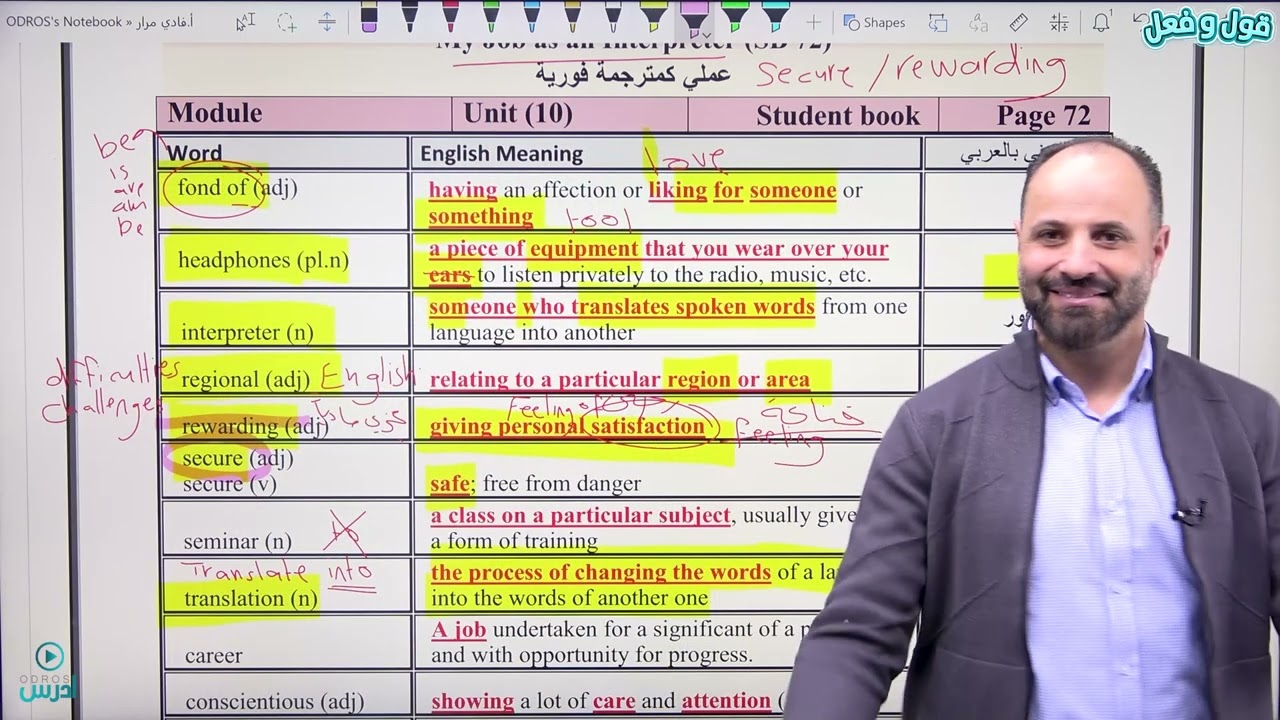 ODROS's Notebook » أ.فادي مرار
Shapes
قول و فعل
My Job as an Interpreter (SB 72)
عملي كمترجمة فورية
secure / rewarding
Module Unit (10) Student book Page 72
Word English Meaning بالعربي
love
be
is
are
am
be
fond of (adj) having an affection or liking for someone or
something
tool
headphones (pl.n) a piece of equipment that you wear over your
ears to listen privately to the radio, music, etc.
interpreter (n) someone who translates spoken words from one
language into another
difficulties
challenges
regional (adj) English relating to a particular region or area
Feeling of
rewarding (adj) giving personal satisfaction
feeling
secure (adj)
secure (v) safe; free from danger
seminar (n) a class on a particular subject, usually give
a form of training
Translate into
translation (n) the process of changing the words of a la
into the words of another one
career A job undertaken for a significant of a p
and with opportunity for progress.
conscientious (adj) showing a lot of care and attention (
ODROS
ادرس